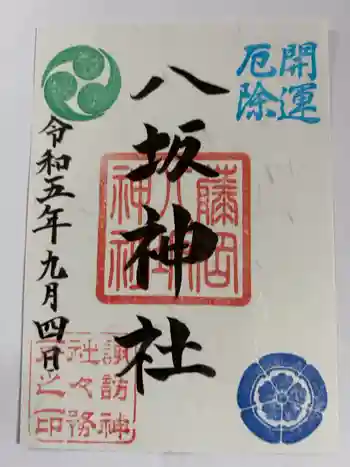 開運
厄除
八坂神社
藤岡
八坂
神社
令和五年九月四日
諏訪神
社々務
之印